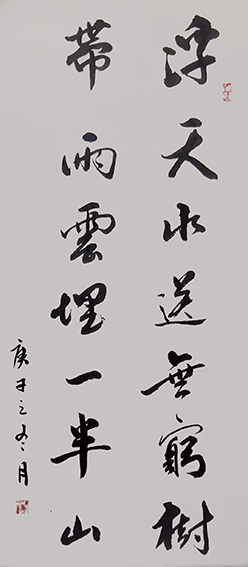 浮天水送無窮樹
帶雨雲埋一半山
庚子之冬月